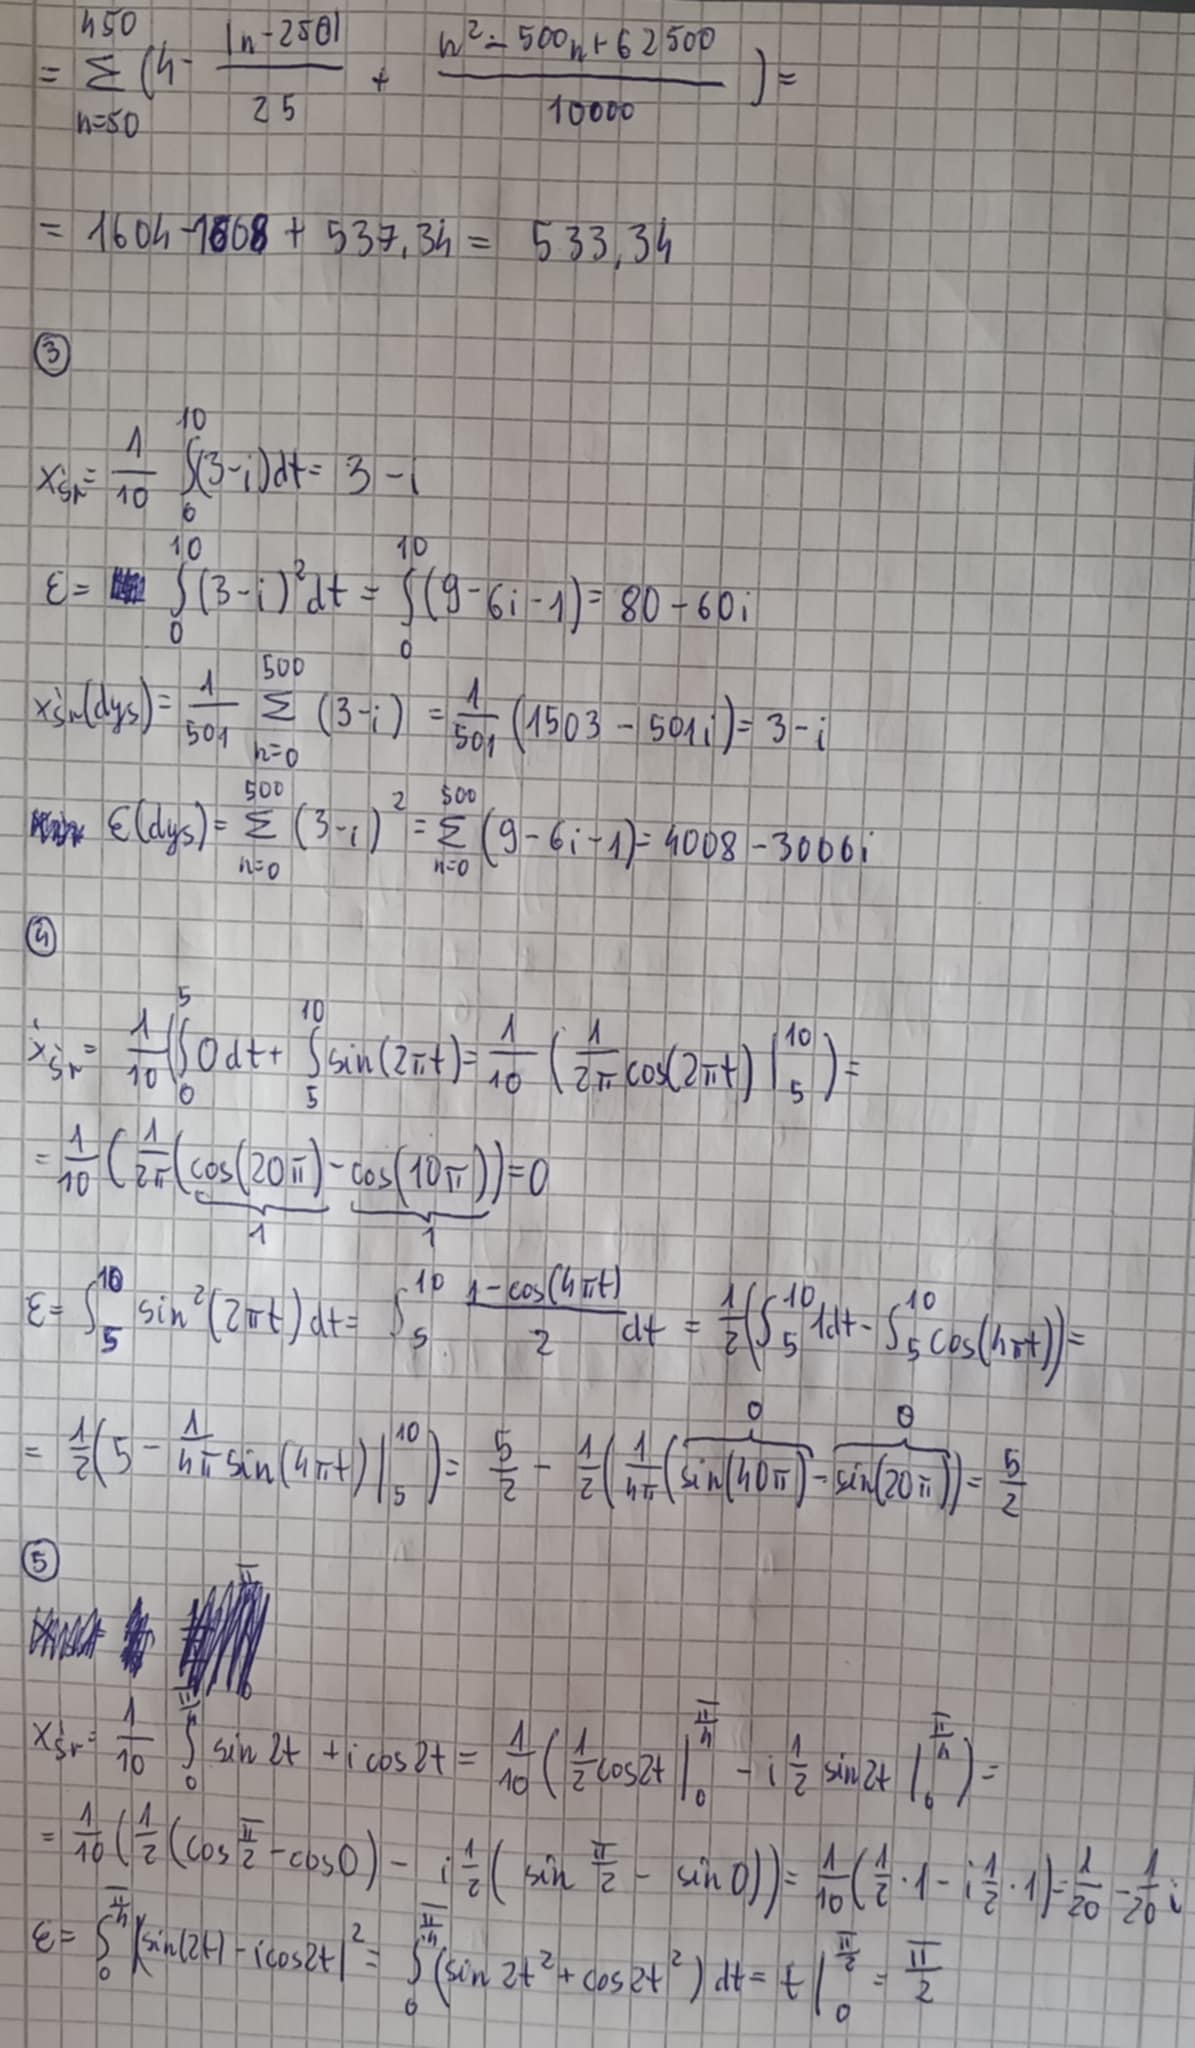 = \sum_{n=50}^{450} (4 - \frac{|n-250|}{25} + \frac{n^2 - 500n + 62500}{10000}) =
= 1604 - 1608 + 537,34 = 533,34
③
x_{śr} = \frac{1}{10} \int_0^{10} (3-i)dt = 3 - i
ε = \int_0^{10} (3-i)^2 dt = \int_0^{10} (9 - 6i - 1) = 80 - 60i
x_{śr}(dys) = \frac{1}{501} \sum_{n=0}^{500} (3-i) = \frac{1}{501} (1503 - 501i) = 3 - i
ε(dys) = \sum_{n=0}^{500} (3-i)^2 = \sum_{n=0}^{500} (9 - 6i - 1) = 4008 - 3006i
④
x_{śr} = \frac{1}{10} (\int_0^5 0dt + \int_5^{10} sin(2πt) = \frac{1}{10} (\frac{1}{2π} cos(2πt) |_5^{10}) =
= \frac{1}{10} (\frac{1}{2π} (\underbrace{cos(20π)}_{1} - \underbrace{cos(10π)}_{1})) = 0
ε = \int_5^{10} sin^2(2πt)dt = \int_5^{10} \frac{1 - cos(4πt)}{2} dt = \frac{1}{2} (\int_5^{10} 1dt - \int_5^{10} cos(4πt)) =
= \frac{1}{2} (5 - \frac{1}{4π} sin(4πt) |_5^{10}) = \frac{5}{2} - \frac{1}{2} (\frac{1}{4π} (\overbrace{sin(40π)}^{0} - \overbrace{sin(20π)}^{0})) = \frac{5}{2}
⑤
x_{śr} = \frac{1}{10} \int_0^{\frac{π}{4}} sin2t + i cos2t = \frac{1}{10} (\frac{1}{2} cos2t |_0^{\frac{π}{4}} - i \frac{1}{2} sin2t |_0^{\frac{π}{4}}) =
= \frac{1}{10} (\frac{1}{2} (cos\frac{π}{2} - cos0) - i \frac{1}{2} (sin\frac{π}{2} - sin0)) = \frac{1}{10} (\frac{1}{2} · 1 - i \frac{1}{2} · 1) = \frac{1}{20} - \frac{1}{20} i
ε = \int_0^{\frac{π}{4}} |sin(2t) - i cos2t|^2 = \int_0^{\frac{π}{4}} (sin2t^2 + cos2t^2) dt = t |_0^{\frac{π}{2}} = \frac{π}{2}